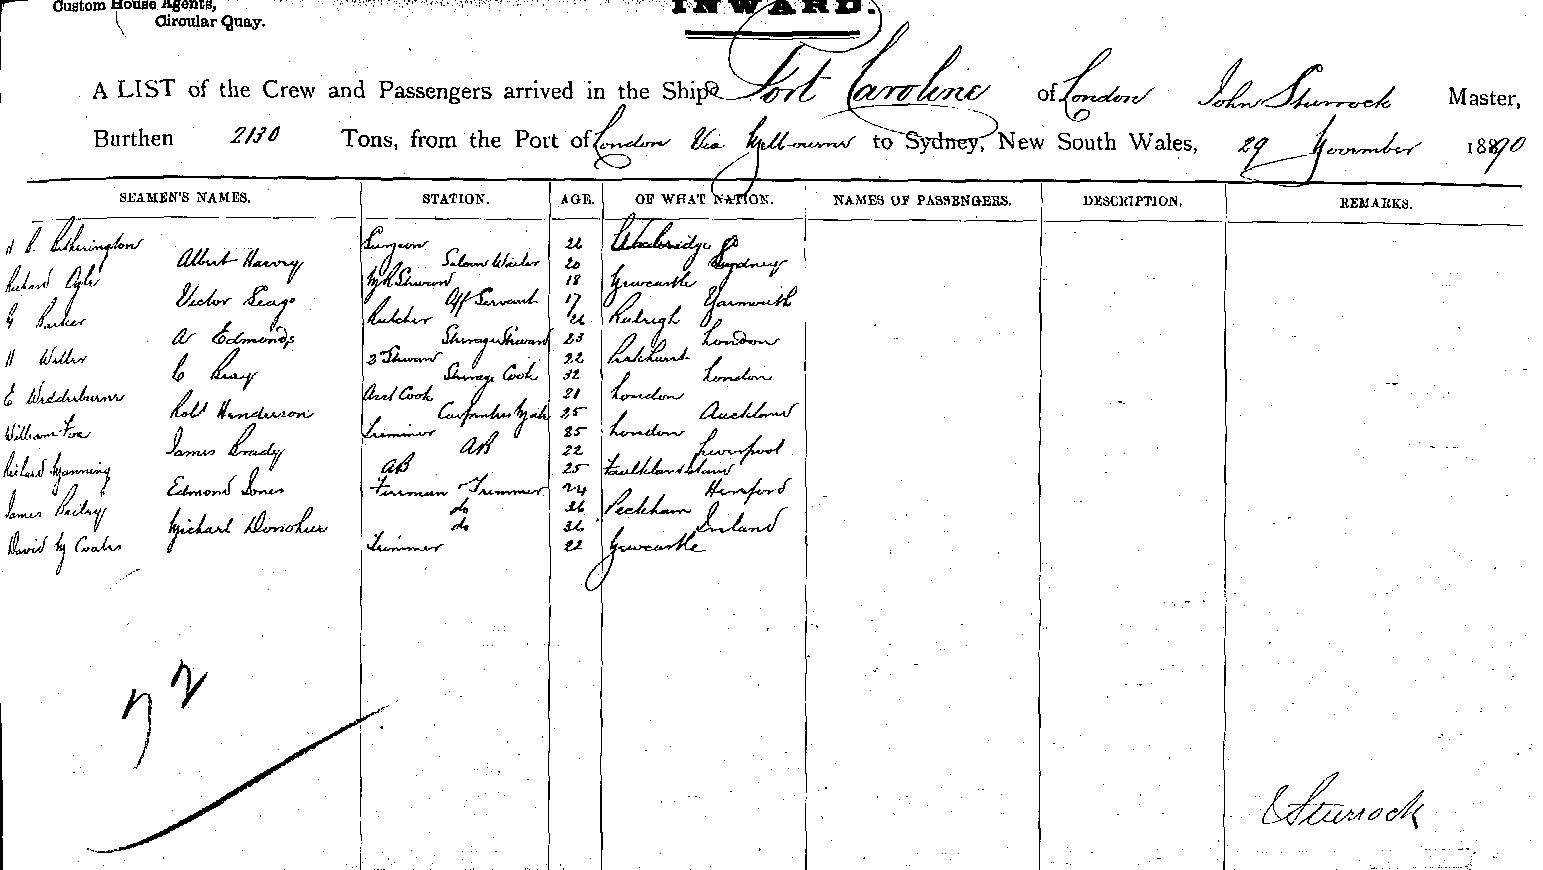 Custom House Agents,
Circular Quay.
INWARD.
A LIST of the Crew and Passengers arrived in the Ship Fort Caroline of London John Sturrock Master,
Burthen 2130 Tons, from the Port of London Via Melbourne to Sydney, New South Wales, 29 November 1890
SEAMEN'S NAMES. STATION. AGE. OF WHAT NATION. NAMES OF PASSENGERS. DESCRIPTION. REMARKS.
Surgeon
Albert Harvey Saloon Waiter 20 Sydney
Richard 18 Newcastle
Victor Seago Off Servant 17 Yarmouth
Barker Butcher Raleigh
A Edmonds Steerage Steward 23 London
2 Steward 22
C Bray Steerage Cook 32 London
E Wedderburne Asst Cook London
Robt Henderson Carpenters Mate 25 Auckland
William Fox Trimmer 25 London
James Brady AB 22 Liverpool
Richard Manning AB 25
Edmond Jones Fireman & Trimmer 24 Hereford
James Bailey do 26 Peckham
Michael Donohue do Ireland
David M Coates Trimmer 22 Newcastle
72
Sturrock